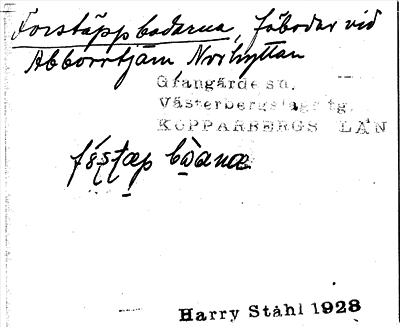 Forstäppbodarna, fäbodar vid
Abborrtjärn Norhyttan
Grangärde sn.
Västerbergslags tg.
KOPPARBERGS LÄN
Harry Ståhl 1928